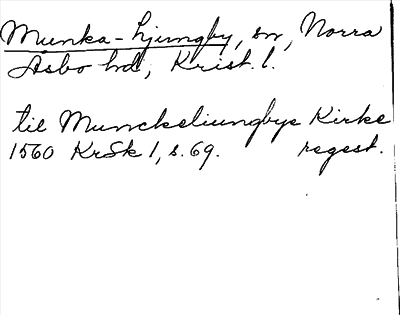 Munka-Ljungby, sn, Norra
Åsbo hd, Krist. l.
til Munckeliungbys Kirke
1560 KrSk 1, s. 69. regest.